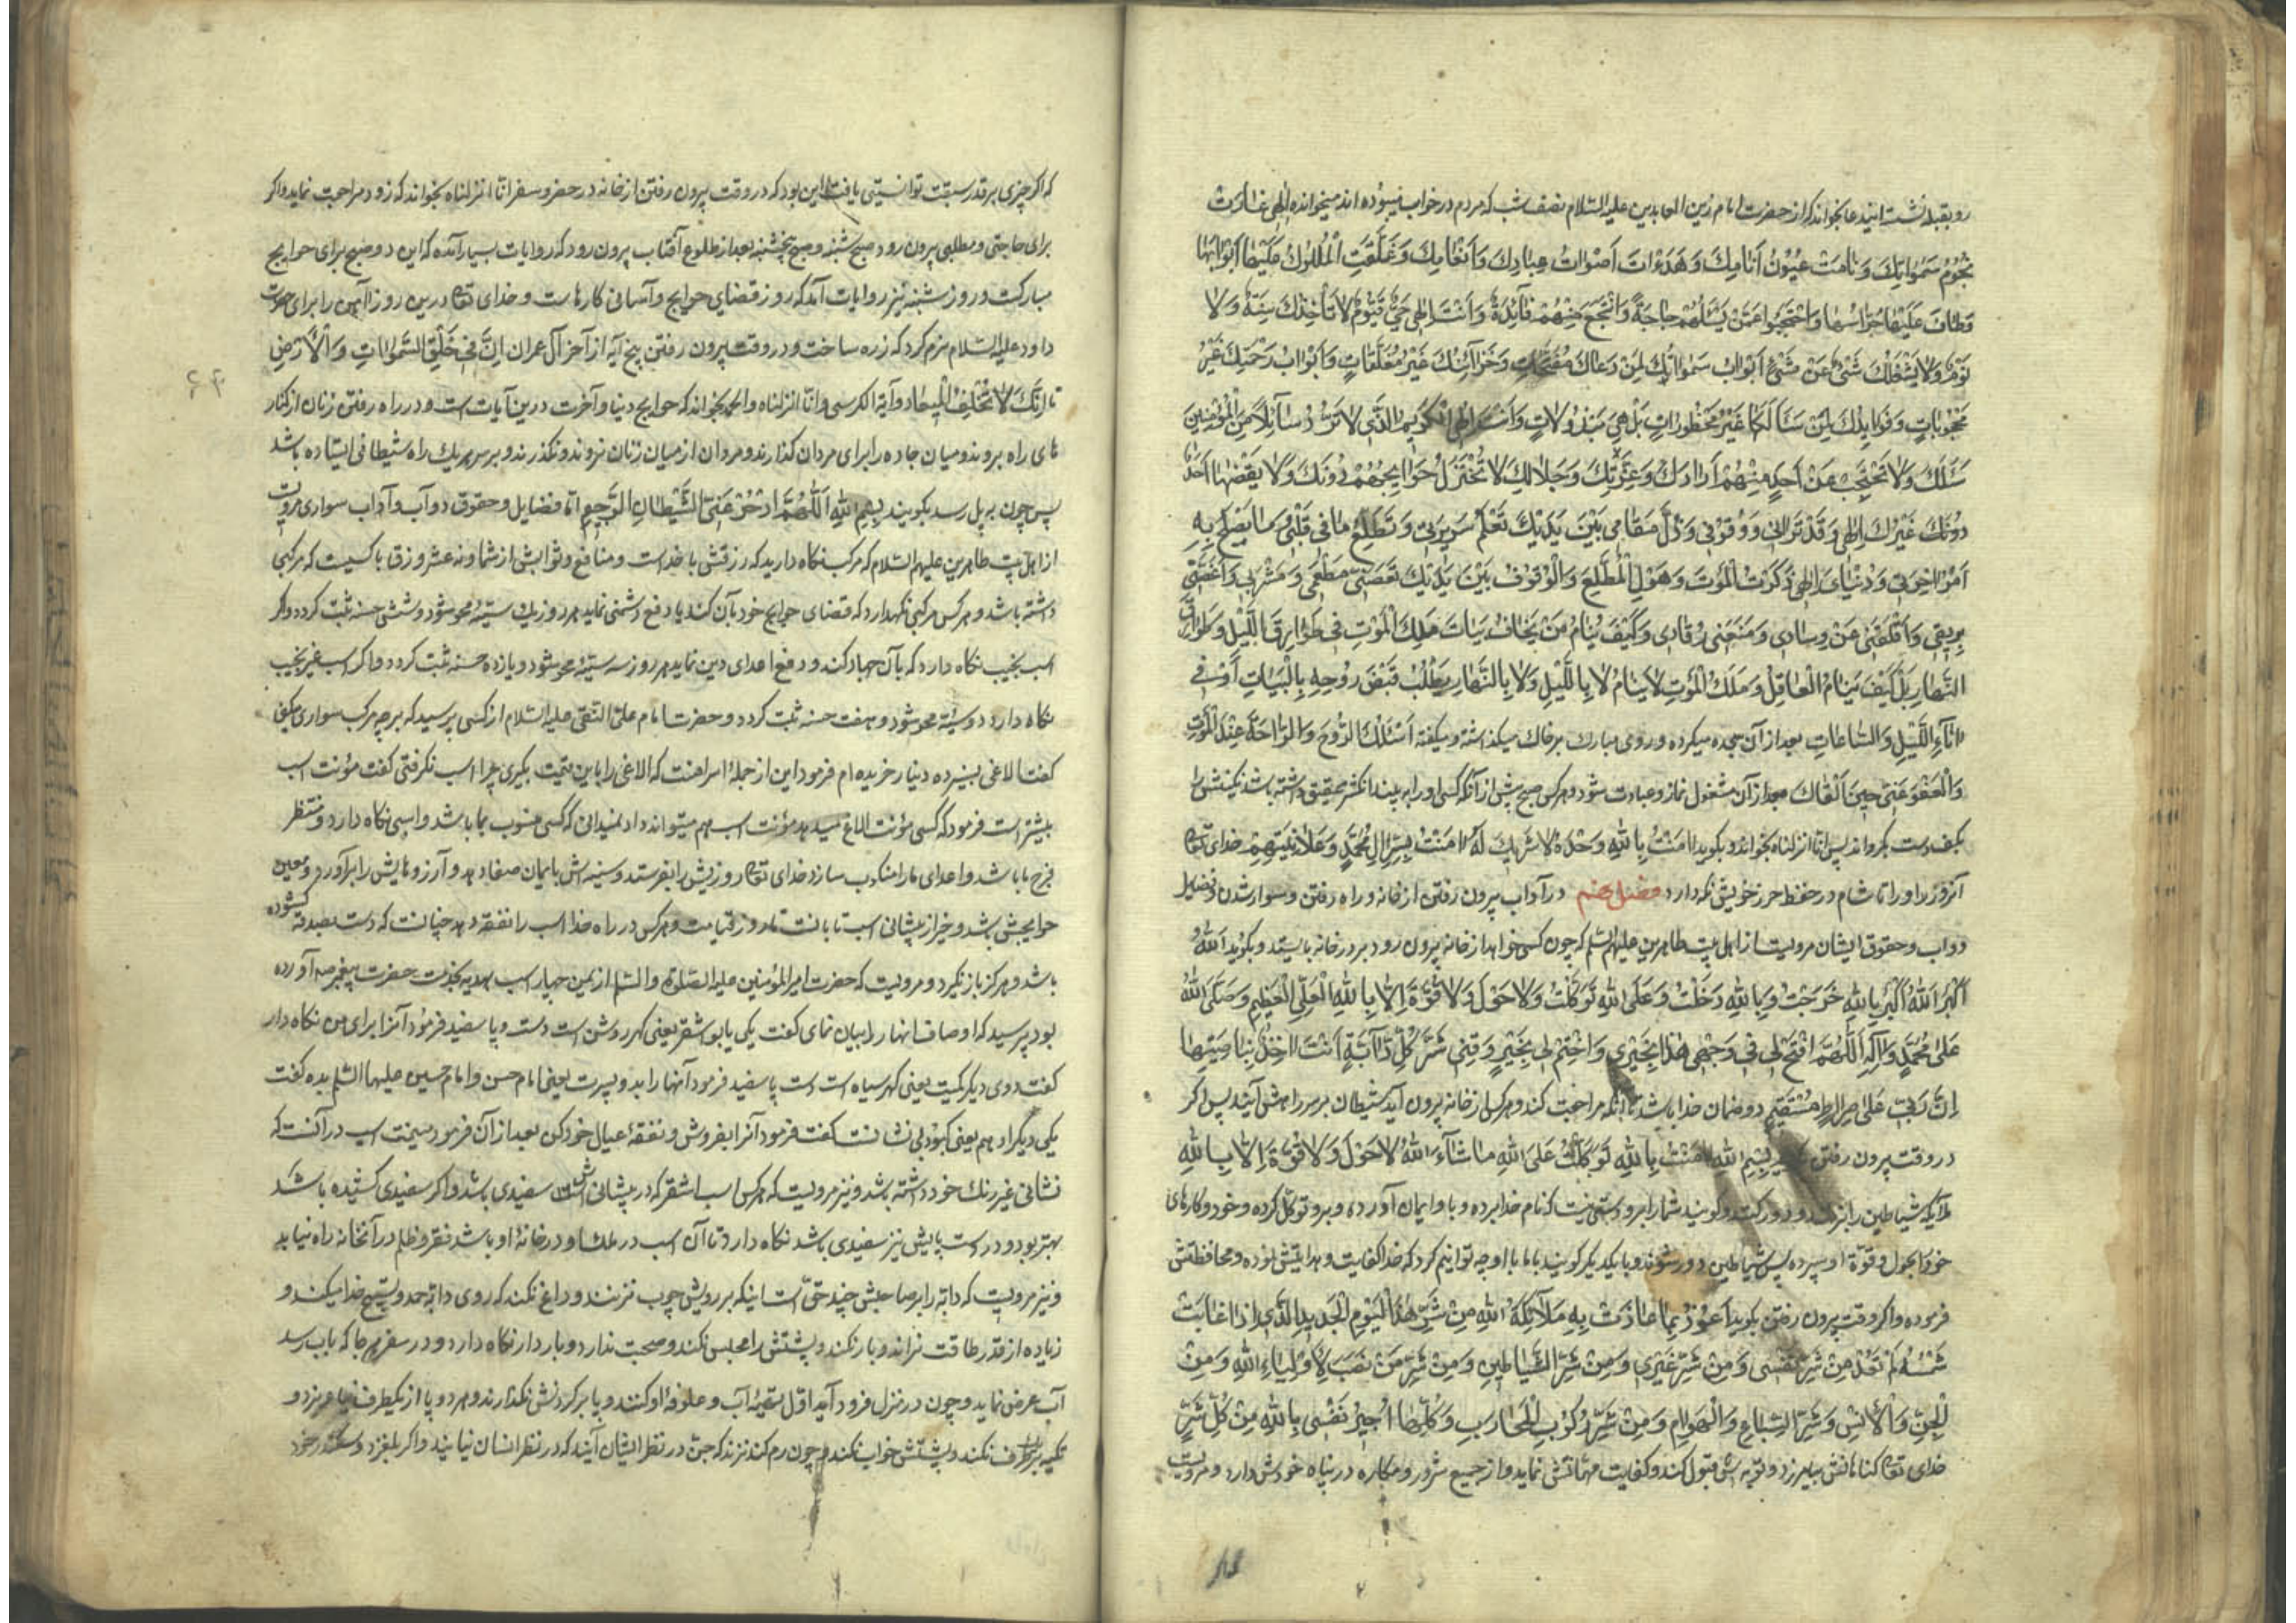 رو بقبله نشست اینید عا بخواند که از حضرت امام زین العابدین علیه السلام نصف شب که مردم در خواب میبوده اند میخوانده الٰهی غارَت
نُجُومُ سَمٰوٰاتِكَ وَنٰامَتْ عُیُونُ اَنٰامِكَ وَهَدَءَاتَ اَصْوٰاتُ عِبٰادِكَ وَاَنْعٰامِكَ وَغَلَّقَتِ الْمُلُوكُ عَلَیْهٰا اَبْوٰابَهٰا
وَطٰافَ عَلَیْهٰا حُرّٰاسُهٰا وَاحْتَجَبُوا عَمَّنْ یَسْئَلُهُمْ حٰاجَةً وَانْتَجَعَ مِنْهُمْ فٰآئِدَةً وَاَنْتَ اِلٰهی حَیٌّ قَیُّومٌ لاٰ تَأْخُذُكَ سِنَةٌ وَلاٰ
نَوْمٌ وَلاٰ یَشْغَلُكَ شَیْءٌ عَنْ شَیْءٍ اَبْوٰابُ سَمٰوٰاتِكَ لِمَنْ دَعٰاكَ مُفَتَّحٰاتٌ وَخَزٰآئِنُكَ غَیْرُ مُغَلَّقٰاتٍ وَاَبْوٰابُ رَحْمَتِكَ غَیْرُ
مَحْجُوبٰاتٍ وَفَوٰایِدُكَ لِمَنْ سَئَالَكَهٰا غَیْرُ مَحْظُورٰاتٍ بَلْ هِیَ مَبْذُولاٰتٍ وَاَنْتَ اِلٰهِی الْكَرِیمُ الَّذِی لاٰ تَرُدُّ سٰآئِلاً مِنَ الْمُؤْمِنِینَ
سَئَلَكَ وَلاٰ تَحْتَجِبُ عَنْ اَحَدٍ مِنْهُمْ اَرٰادَكَ وَعِزَّتِكَ وَجَلاٰلِكَ لاٰ تُخْتَزَلُ حَوٰایِجُهُمْ دُونَكَ وَلاٰ یَقْضِهٰا اَحَدٌ
دُونَكَ غَیْرُكَ اِلٰهِی وَقَدْ تَرٰانِی وَوُقُوفِی وَذُلَّ مَقٰامِی بَیْنَ یَدَیْكَ تَعْلَمُ سَرِیرَتِی وَتَطَّلِعُ مٰا فِی قَلْبِی وَمٰا یَصْلُحُ بِهِ
اَمْرُ اٰخِرَتِی وَدُنْیٰایَ اِلٰهِی ذِكْرَتُ الْمَوْتَ وَهَوْلِ الْمُطَّلَعَ وَالْوُقُوفَ بَیْنَ یَدَیْكَ نَغَّصَنِی مَطْعَمِی وَمَشْرَبِی وَاَغَصَّنِی
بِرِیقِی وَاَقْلَقَنِی عَنْ وِسٰادِی وَمَنَعَنِی رُقٰادِی وَكَیْفَ یَنٰامُ مَنْ یَخٰافُ بَیٰاتَ مَلَكِ الْمَوْتِ فِی طَوٰارِقِ اللَّیْلِ وَطَوٰارِقِ
النَّهٰارِ بَلْ كَیْفَ یَنٰامُ الْعٰاقِلُ وَمَلَكُ الْمَوْتِ لاٰ یَنٰامُ لاٰ بِاللَّیْلِ وَلاٰ بِالنَّهٰارِ یَطْلُبُ قَبْضَ رُوحِهِ بِالْبَیٰاتِ اَوْ فِی
اٰنٰآءِ اللَّیْلِ وَالسّٰاعٰاتِ بعد از آن سجده میکرده و روی مبارک بر خاک میگذاشته و میگفته اَسْئَلُكَ الرُّوحَ وَالرّٰاحَةَ عِنْدَ الْمَوْتِ
وَالْعَفْوَ عَنِّی حِینَ اَلْقٰاكَ بعد از آن مشغول نماز و عبادت شود و هرکس صبح پیش از آنکه کسی او را به بیند انگشتر عقیق داشته باشد نگینش را
بکف دست بگرداند پس انا انزلناه بخواند و بگوید اٰمَنْتُ بِاللهِ وَحْدَهُ لاٰ شَرِیكَ لَهُ اٰمَنْتُ بِسِرِّ اٰلِ مُحَمَّدٍ وَعَلاٰنِیَتِهِمْ خدای تعالی
آنروز او را تا شام در حفظ حرز خویش نکه دارد فصل پنجم در آداب بیرون رفتن از خانه و راه رفتن و سوار شدن و فضیل
دواب و حقوق ایشان مرویست از اهل بیت طاهرین علیهم السلم که چون کسی خواهد از خانه بیرون رود بر در خانه بایستد و بگوید اَللهُ
اَكْبَرُ اَللهُ اَكْبَرُ بِاللهِ خَرَجْتُ وَبِاللهِ دَخَلْتُ وَعَلَی اللهِ تَوَكَّلْتُ وَلاٰ حَوْلَ وَلاٰ قُوَّةَ اِلاّٰ بِاللهِ الْعَلِیِّ الْعَظِیمِ وَصَلَّی اللهُ
عَلیٰ مُحَمَّدٍ وَاٰلِهِ اَللّٰهُمَّ افْتَحْ لِی فِی وَجْهِی هٰذٰا بِخَیْرٍ وَاخْتِمْ لِی بِخَیْرٍ وَقِنِی شَرَّ كُلِّ دٰآبَّةٍ اَنْتَ اٰخِذٌ بِنٰاصِیَتِهٰا
اِنَّ رَبِّی عَلیٰ صِرٰاطٍ مُسْتَقِیمٍ در ضمان خدا باشد تا آنکه مراجعت کند و هرکس از خانه بیرون آید شیطان بر سر راهش آیند پس اگر
در وقت بیرون رفتن بگوید بِسْمِ اللهِ اٰمَنْتُ بِاللهِ تَوَكَّلْتُ عَلَی اللهِ مٰا شٰآءَ اللهُ لاٰ حَوْلَ وَلاٰ قُوَّةَ اِلاّٰ بِاللهِ
ملایکه شیاطین را بزنند و دور کنند و گویند شما را برو دستی نیست که نام خدا برده و با و ایمان آورده و برو توکل کرده و خود و کارهای
خود را بحول و قوّة او سپرده پس شیاطین دور شوند و با یکدیگر گویند باما با او چه توانیم کرد که خدا کفایت و هدایتش نموده و محافظتش
فرموده و اگر وقت بیرون رفتن بگوید اَعُوذُ بِمٰا عٰاذَتْ بِهِ مَلاٰئِكَةُ اللهِ مِنْ شَرِّ هٰذَا الْیَوْمِ الْجَدِیدِ الَّذِی اِذٰا غٰابَتْ
شَمْسُهُ لَمْ تَعُدْ مِنْ شَرِّ نَفْسِی وَمِنْ شَرِّ غَیْرِی وَمِنْ شَرِّ الشَّیٰاطِینِ وَمِنْ شَرِّ مَنْ نَصَبَ لِاَوْلِیٰاءِ اللهِ وَمِنْ
الْجِنِّ وَالْاِنْسِ وَشَرِّ السِّبٰاعِ وَالْهَوٰامِّ وَمِنْ شَرِّ رُكُوبِ الْمَحٰارِبِ وَكُلِّهٰا اُجِیرُ نَفْسِی بِاللهِ مِنْ كُلِّ شَرٍّ
خدای تعالی گناهانش بیامرزد و توبه اش قبول کند و کفایت مهماتش نماید و از جمیع شرور و مکاره در پناه خودش دارد و مرویست
که اگر چیزی بر قدر سبقت توانستی یافت این بود که در وقت بیرون رفتن از خانه در حضر و سفر انا انزلناه بخواند که زود مراجعت نماید و اگر
برای حاجتی و مطلبی بیرون رود صبح شنبه و صبح پنجشنبه بعد از طلوع آفتاب بیرون رود که روایات بسیار آمده که این دو صبح برای حوایج
مبارکست و روز شنبه نیز روایات آمده که روز قضای حوایج و آسانی کارهاست و خدای تعالی درین روز آهن را برای حضرت
داود علیه السلام نرم کرد که زره ساخت و در وقت بیرون رفتن پنج آیه از آخر آل عمران اِنَّ فِی خَلْقِ السَّمٰوٰاتِ وَالْاَرْضِ
تا اِنَّكَ لاٰ تُخْلِفُ الْمِیعٰاد و آیة الکرسی و انّا انزلناه و الحمد بخواند که حوایج دنیا و آخرت درین آیات است و در راه رفتن زنان از کنار
های راه بروند و میان جاده را برای مردان گذارند و مردان از میان زنان نروند و نگذرند و بر سر هر یک راه شیطانی ایستاده باشد
پس چون به پل رسد بگویند بِسْمِ اللهِ اَللّٰهُمَّ ادْحَرْ عَنِّی الشَّیْطٰانِ الرَّجِیمِ امّا فضایل و حقوق دوآب و آداب سواری مرویست
از اهل بیت طاهرین علیهم السلام که مرکب نگاه دارید که رزقش با خداست و منافع و ثوابش از شما و نه عشر رزق با کسیست که مرکبی
داشته باشد و هرکس مرکبی نگهدارد که قضای حوایج خود بآن کند یا دفع دشمنی نماید هر روز یک سیّئه محو شود و شش حسنه ثبت گردد و اگر
اسب نجیب نگاه دارد که بآن جهاد کند و دفع اعدای دین نماید هر روز سه سیّئه محو شود و یازده حسنه ثبت گردد و اگر اسب غیر نجیب
نگاه دارد دو سیّئه محو شود و هفت حسنه ثبت گردد و حضرت امام علی النقی علیه السلام از کسی پرسید که بر چه مرکب سواری میکنی
گفت الاغی بسیزده دینار خریده ام فرمود این از جملهٔ اسرافست که الاغی را باین قیمت بگیری چرا اسب نگرفتی گفت مؤنت اسب
بیشتر است فرمود که کسی مؤنت الاغ میدهد مؤنت اسب هم میتواند داد نمیدانی که کسی منسوب بما باشد و اسبی نگاه دارد و منتظر
فرج ما باشد و اعدای ما را منکوب سازد خدای تعالی روزیش را بفرستد و سینه اش بایمان صفا دهد و آرزوهایش را برآورد و معین
حوایجش باشد و خیر از پیشانی اسب تا بانت تا روز قیامت و هرکس در راه خدا اسب را نفقه دهد چنانست که دست بصدقه گشوده
باشد و هرگز باز نگیرد و مرویست که حضرت امیرالمؤمنین علیه الصلوة والسلم از یمن چهار اسب هدیه بخدمت حضرت پیغمبر صه آورده
بود پرسید که اوصاف انها را بیان نمای گفت یکی یابو اشقر یعنی کهر روشن است دست و پا سفید فرمود آنرا برای من نگاه دار
گفت دوی دیگر کمیت یعنی کهر سیاه است دست پا سفید فرمود آنها را بدو پسرت یعنی امام حسن و امام حسین علیهما السلم بده گفت
یکی دیگر ادهم یعنی کبود بی نشانست گفت فرمود آنرا بفروش و نفقهٔ عیال خود کن بعد از آن فرمود میمنت اسب در آنست که
نشانی غیر رنگ خود داشته باشد و نیز مرویست که هرکس اسب اشقر که در پیشانی اش سفیدی باشد و اگر سفیدی کشیده باشد
بهتر بود و در دست پایش نیز سفیدی باشد نگاه دارد تا آن اسب در ملک او در خانهٔ او باشد فقر و ظلم در آنخانه راه نیابد
و نیز مرویست که دابّه را بر صاحبش چند حقّ است اینکه بر رویش چوب نزنند و داغ نکند که روی دابّه حمد و تسبیح خدا میکند و
زیاده از قدر طاقت نراند و بار نکند و پشتش را مجلس نکند و صحبت ندارد و باردار نگاه دارد و در سفر هر جا که باب رسد
آب عرض نماید و چون در منزل فرود آید اوّل بقیهٔ آب و علوفهٔ او کنند و پا بر گردنش نگذارند و هر دو پا از یکطرف نیاویزد و
تکیه بر یکطرف نکند و بپشتش خواب نکند و چون رم کند نزند که جن در نظر ایشان آیند که در نظر انسان نیایند و اگر بلغزد و سکندر خورد